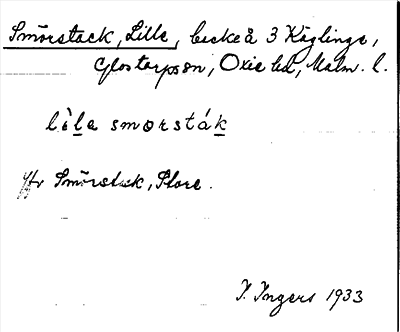 Smörstack, Lille, backe å 3 Käglinge,
Glostorpssn, Oxie hd, Malm. l.
lìle smorsták
Jfr Smörstack, Store.
I. Ingers 1933